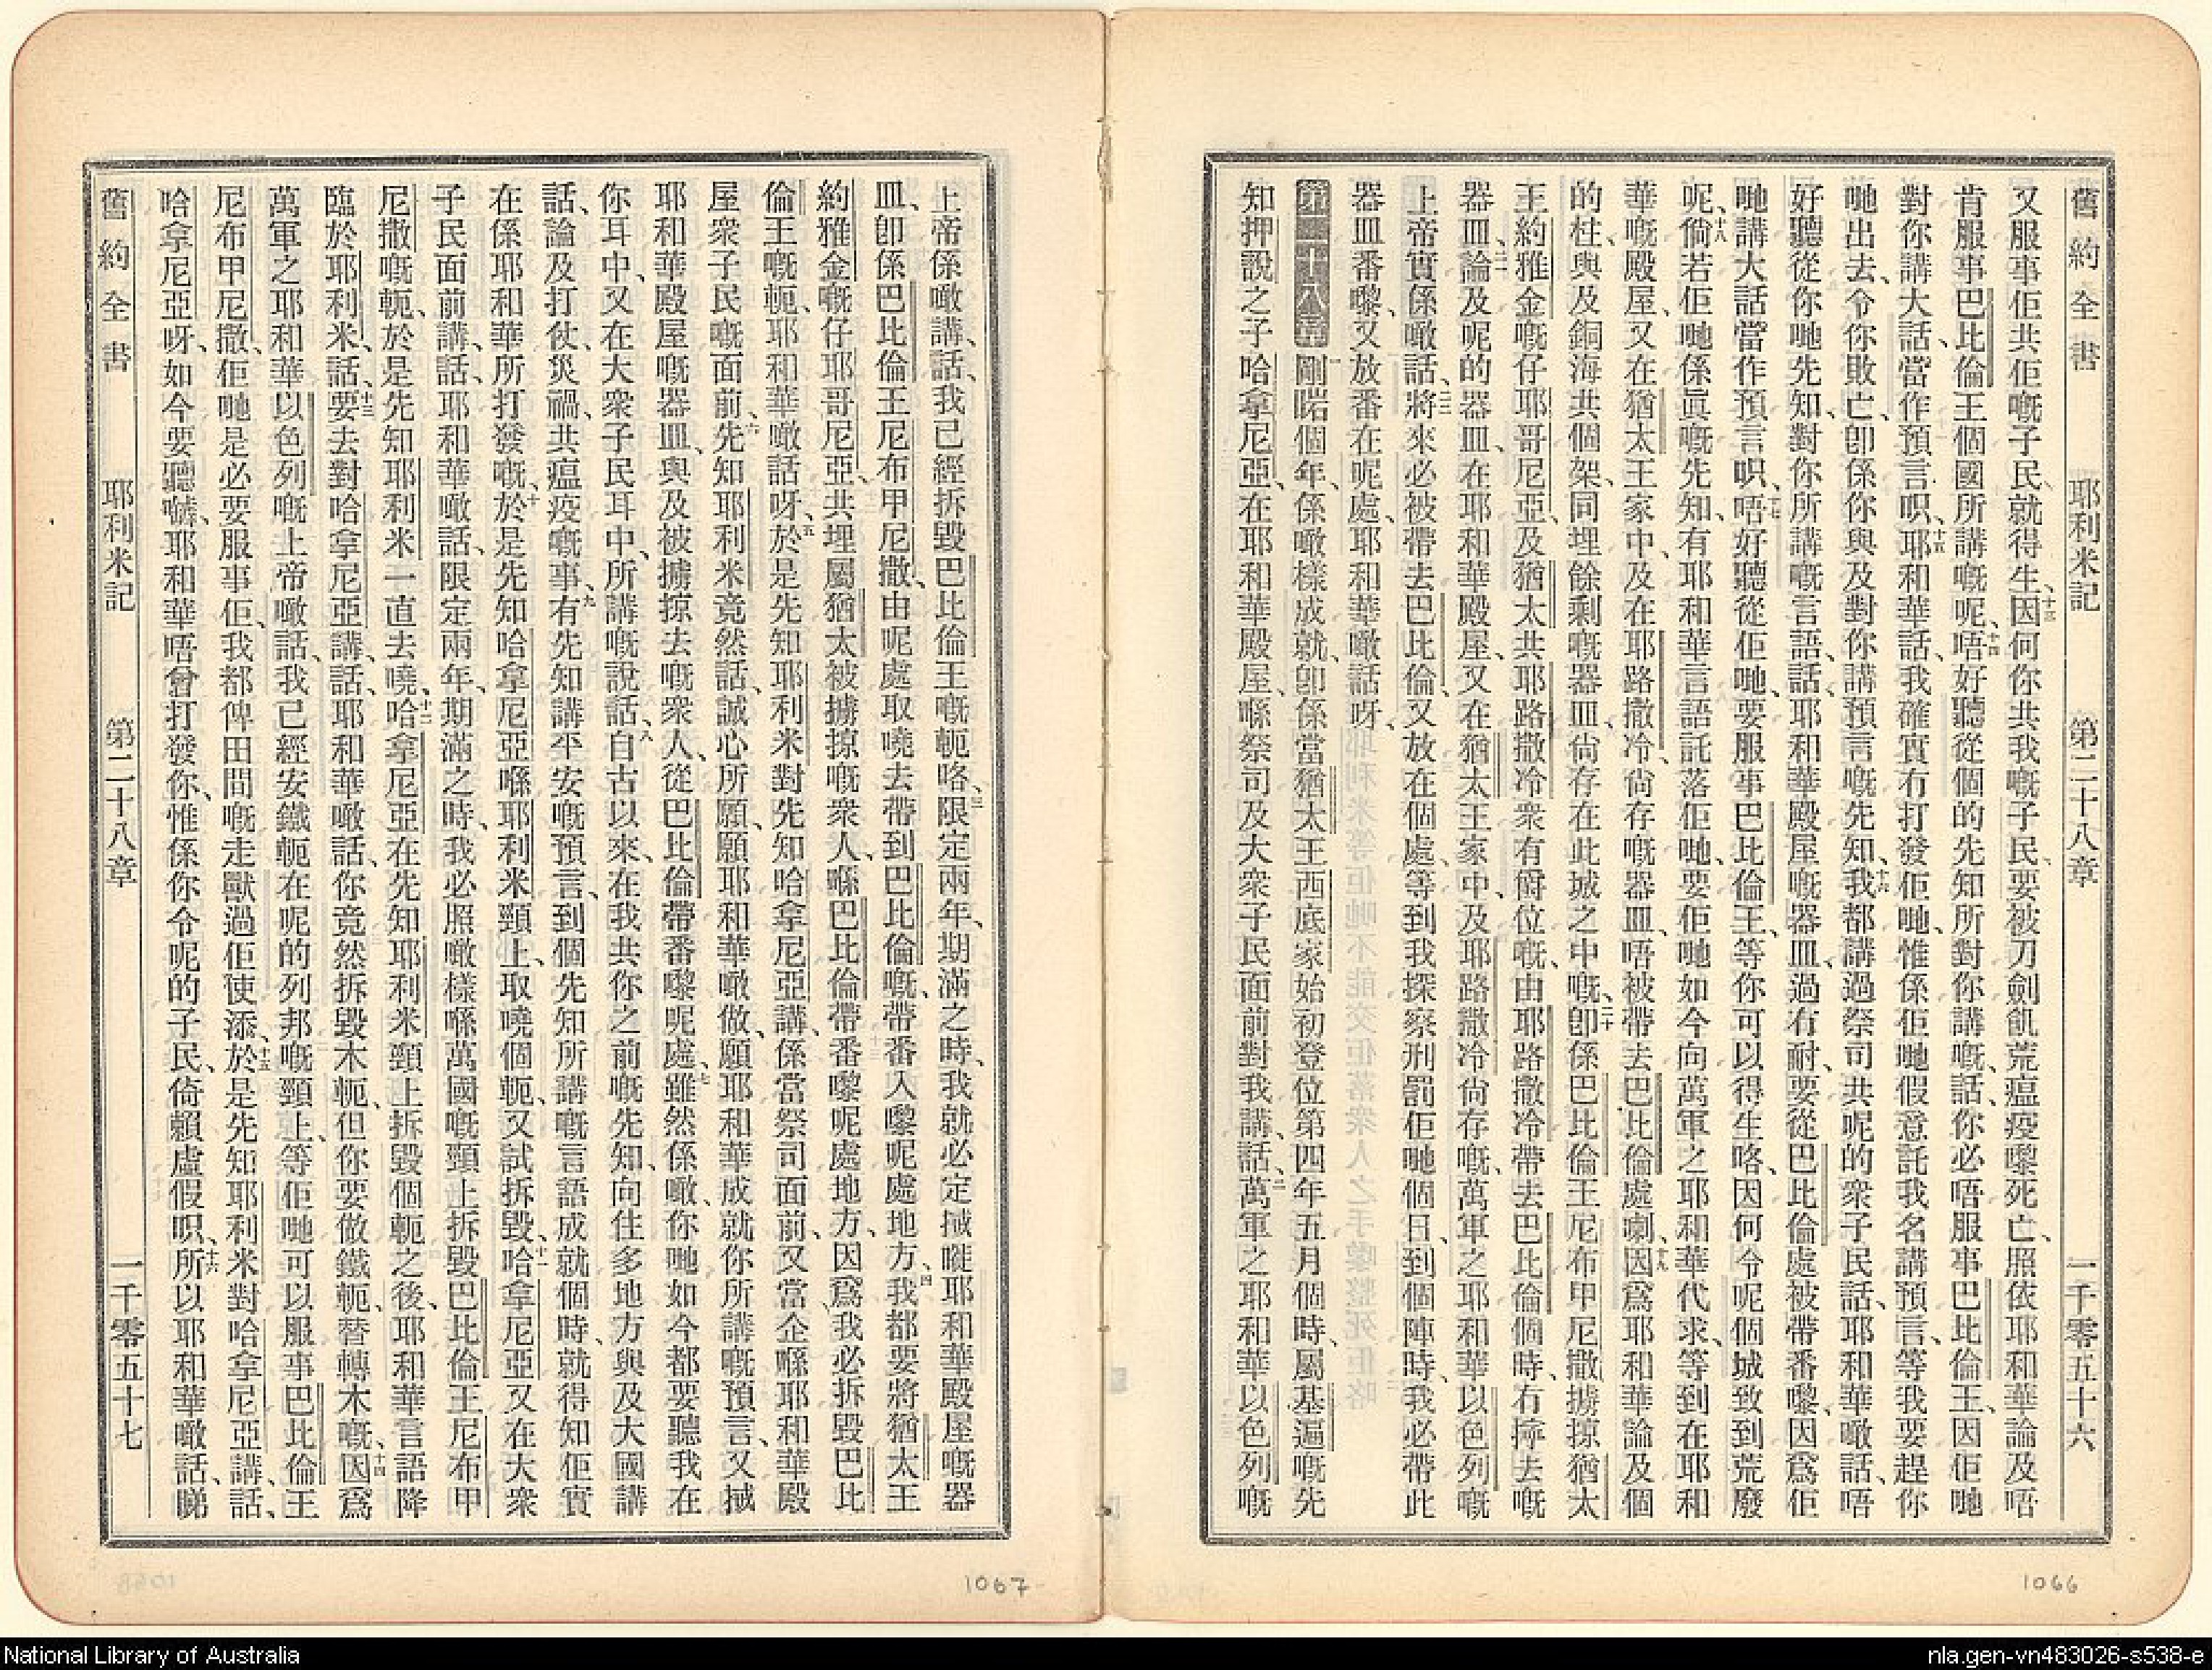 舊約全書 耶利米記 第二十八章 一千零五十六
又服事佢共佢嘅子民就得生、十三因何你共我嘅子民、要被刀劍飢荒瘟疫嚟死亡、照依耶和華論及唔
肯服事巴比倫王個國所講嘅呢、十四唔好聽從個的先知所對你講嘅話、你必唔服事巴比倫王、因佢哋
對你講大話、當作預言呮、十五耶和華話、我確實冇打發佢哋、惟係佢哋假意託我名講預言、等我要趕你
哋出去、令你敗亡、卽係你與及對你講預言嘅先知、十六我都講過祭司共呢的衆子民話、耶和華噉話、唔
好聽從你哋先知、對你所講嘅言語、話耶和華殿屋嘅器皿、過有耐、要從巴比倫處被帶番嚟、因爲佢
哋講大話當作預言呮、十七唔好聽從佢哋、要服事巴比倫王、等你可以得生咯、因何令呢個城致到荒廢
呢、十八倘若佢哋係眞嘅先知、有耶和華言語託落佢哋、要佢哋如今向萬軍之耶和華代求、等到在耶和
華嘅殿屋、又在猶太王家中、及在耶路撒冷、尙存嘅器皿、唔被帶去巴比倫處喇、十九因爲耶和華論及個
的柱、與及銅海共個架、同埋餘剩嘅器皿、尙存在此城之中嘅、二十卽係巴比倫王尼布甲尼撒、擄掠猶太
王約雅金嘅仔耶哥尼亞、及猶太共耶路撒冷衆有爵位嘅、由耶路撒冷帶去巴比倫個時、冇擰去嘅
器皿、二一論及呢的器皿、在耶和華殿屋、又在猶太王家中、及耶路撒冷尙存嘅、萬軍之耶和華以色列嘅
上帝實係噉話、二二將來必被帶去巴比倫、又放在個處、等到我探察刑罰佢哋個日、到個陣時、我必帶此
器皿番嚟、又放番在呢處、耶和華噉話呀、
第二十八章 一剛啱個年、係噉樣成就、卽係當猶太王西底家始初登位第四年五月個時、屬基遍嘅先
知押說之子哈拿尼亞、在耶和華殿屋、喺祭司及大衆子民面前對我講、話、二萬軍之耶和華以色列嘅
1066
上帝係噉講、話、我已經拆毀巴比倫王嘅軛咯、三限定兩年、期滿之時、我就必定搣嘥耶和華殿屋嘅器
皿、卽係巴比倫王尼布甲尼撒、由呢處取嘵去帶到巴比倫嘅、帶番入嚟呢處地方、四我都要將猶太王
約雅金嘅仔耶哥尼亞、共埋屬猶太被擄掠嘅衆人、喺巴比倫帶番嚟呢處地方、因爲我必拆毀巴比
倫王嘅軛、耶和華噉話呀、五於是先知耶利米對先知哈拿尼亞講、係當祭司面前、又當企喺耶和華殿
屋衆子民嘅面前、六先知耶利米竟然話、誠心所願、願耶和華噉做、願耶和華成就你所講嘅預言、又搣
耶和華殿屋嘅器皿、與及被擄掠去嘅衆人、從巴比倫帶番嚟呢處、七雖然係噉、你哋如今都要聽我在
你耳中、又在大衆子民耳中、所講嘅說話、八自古以來、在我共你之前嘅先知、向住多地方與及大國講
話、論及打仗、災禍、共瘟疫嘅事、九有先知講平安嘅預言、到個先知所講嘅言語成就個時、就得知佢實
在係耶和華所打發嘅、十於是先知哈拿尼亞喺耶利米頸上、取嘵個軛、又試拆毀、十一哈拿尼亞又在大衆
子民面前講、話、耶和華噉話、限定兩年、期滿之時、我必照噉樣喺萬國嘅頸上拆毀巴比倫王尼布甲
尼撒嘅軛、於是先知耶利米一直去嘵、十二哈拿尼亞在先知耶利米頸上拆毀個軛之後、耶和華言語降
臨於耶利米、話、十三要去對哈拿尼亞講、話、耶和華噉話、你竟然拆毀木軛、但你要做鐵軛、替轉木嘅、十四因爲
萬軍之耶和華以色列嘅上帝噉話、我已經安鐵軛在呢的列邦嘅頸上、等佢哋可以服事巴比倫王
尼布甲尼撒、佢哋是必要服事佢、我都俾田間嘅走獸過佢使添、十五於是先知耶利米對哈拿尼亞講、話、
哈拿尼亞呀、如今要聽嚹、耶和華唔曾打發你、惟係你令呢的子民、倚賴虛假呮、十六所以耶和華噉話、睇
舊約全書 耶利米記 第二十八章 一千零五十七
1067
National Library of Australia
nla.gen-vn483026-s538-e